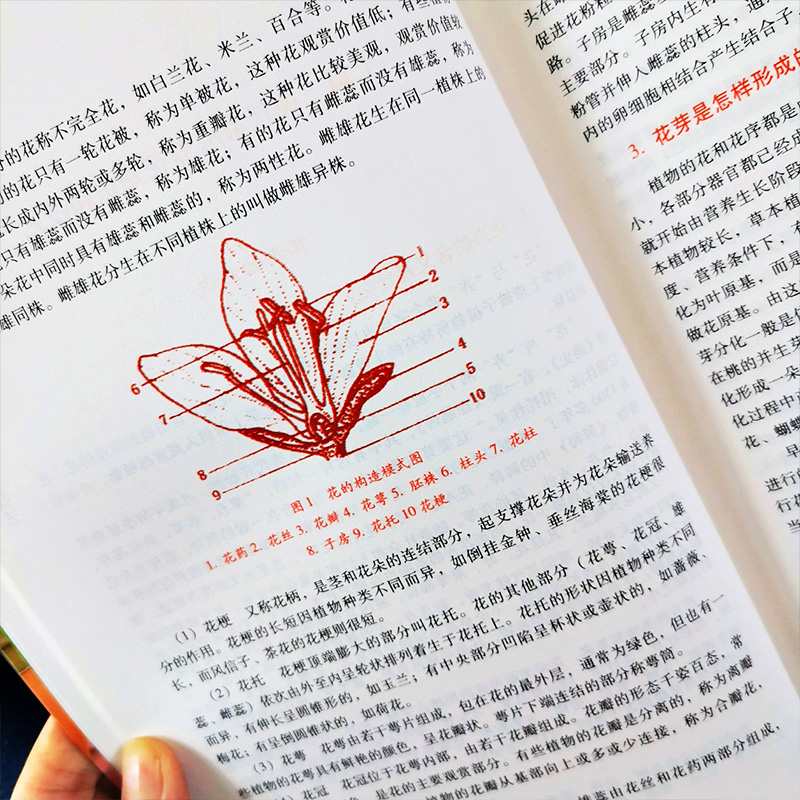 分的花称不完全花，如白兰花、米兰、百合等。
的花只有一轮花被，称为单被花，这种花观赏价值低；有些
长成内外两轮或多轮，称为重瓣花，这种花比较美观，观赏价值较
只有雄蕊而没有雌蕊，称为雄花；有的花只有雌蕊而没有雄蕊，称为
朵花中同时具有雄蕊和雌蕊的，称为两性花。雌雄花生在同一植株上的
雄同株。雌雄花分生在不同植株上的叫做雌雄异株。
1
2
3
4
5
10
6
7
8
9
图1 花的构造模式图
1. 花药 2. 花丝 3. 花瓣 4. 花萼 5. 胚株 6. 柱头 7. 花柱
8. 子房 9. 花托 10 花梗
（1）花梗 又称花柄，是茎和花朵的连结部分，起支撑花朵并为花朵输送养
分的作用。花梗的长短因植物种类不同而异，如倒挂金钟、垂丝海棠的花梗很
长，而风信子、茶花的花梗则很短。
（2）花托 花梗顶端膨大的部分叫花托。花的其他部分（花萼、花冠、雄
蕊、雌蕊）依次由外至内呈轮状排列着生于花托上。花托的形状因植物种类不同
而异，有伸长呈圆锥形的，如玉兰；有中央部分凹陷呈杯状或壶状的，如蔷薇、
梅花；有呈倒圆锥状的，如荷花。
（3）花萼 花萼由若干萼片组成，包在花的最外层，通常为绿色，但也有一
些植物的花萼具有鲜艳的颜色，呈花瓣状。萼片下端连结的部分称萼筒。
花冠 花冠位于花萼内部，由若干花瓣组成。花瓣的形态千姿百态，常
色，是花的主要观赏部分。有些植物的花瓣是分离的，称为离瓣
植物的花瓣从基部向上或多或少连接，称为合瓣花，
雄蕊由花丝和花药两部分组成，
头在雌
促进花粉粒
路。子房是雌蕊基
主要部分。子房内生有
粉管并伸入雌蕊的柱头，通
内的卵细胞相结合产生结合子，
3. 花芽是怎样形成的
植物的花和花序都是
小，各部分器官都已经成
就开始由营养生长阶段
本植物较长，草本植
度、营养条件下，有
化为叶原基，而是
做花原基。由这
芽分化一般是
在桃的并生芽
化形成一朵
化过程中
花、蝴蝶
早
进行
行花
当